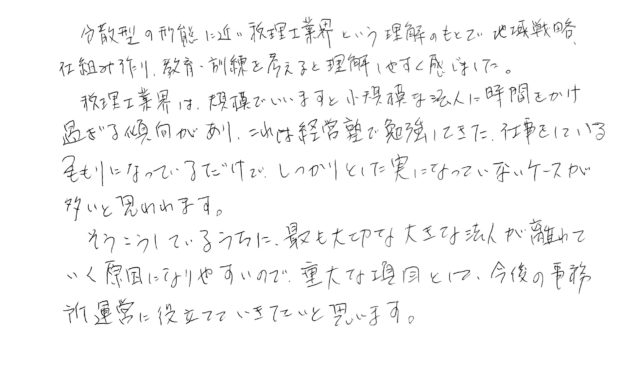 分散型の形態に近い税理士業界という理解のもとで地域戦略、
仕組み作り、教育・訓練を考えると理解しやすく感じました。
税理士業界は、規模でいいますと小規模な法人に時間をかけ
過ぎる傾向があり、これは経営塾で勉強してきた、仕事をしている
つもりになっているだけで、しっかりとした実になっていないケースが
多いと思われます。
そうこうしているうちに、最も大切な大きな法人が離れて
いく原因になりやすいので、重大な項目として、今後の事務
所運営に役立てていきたいと思います。